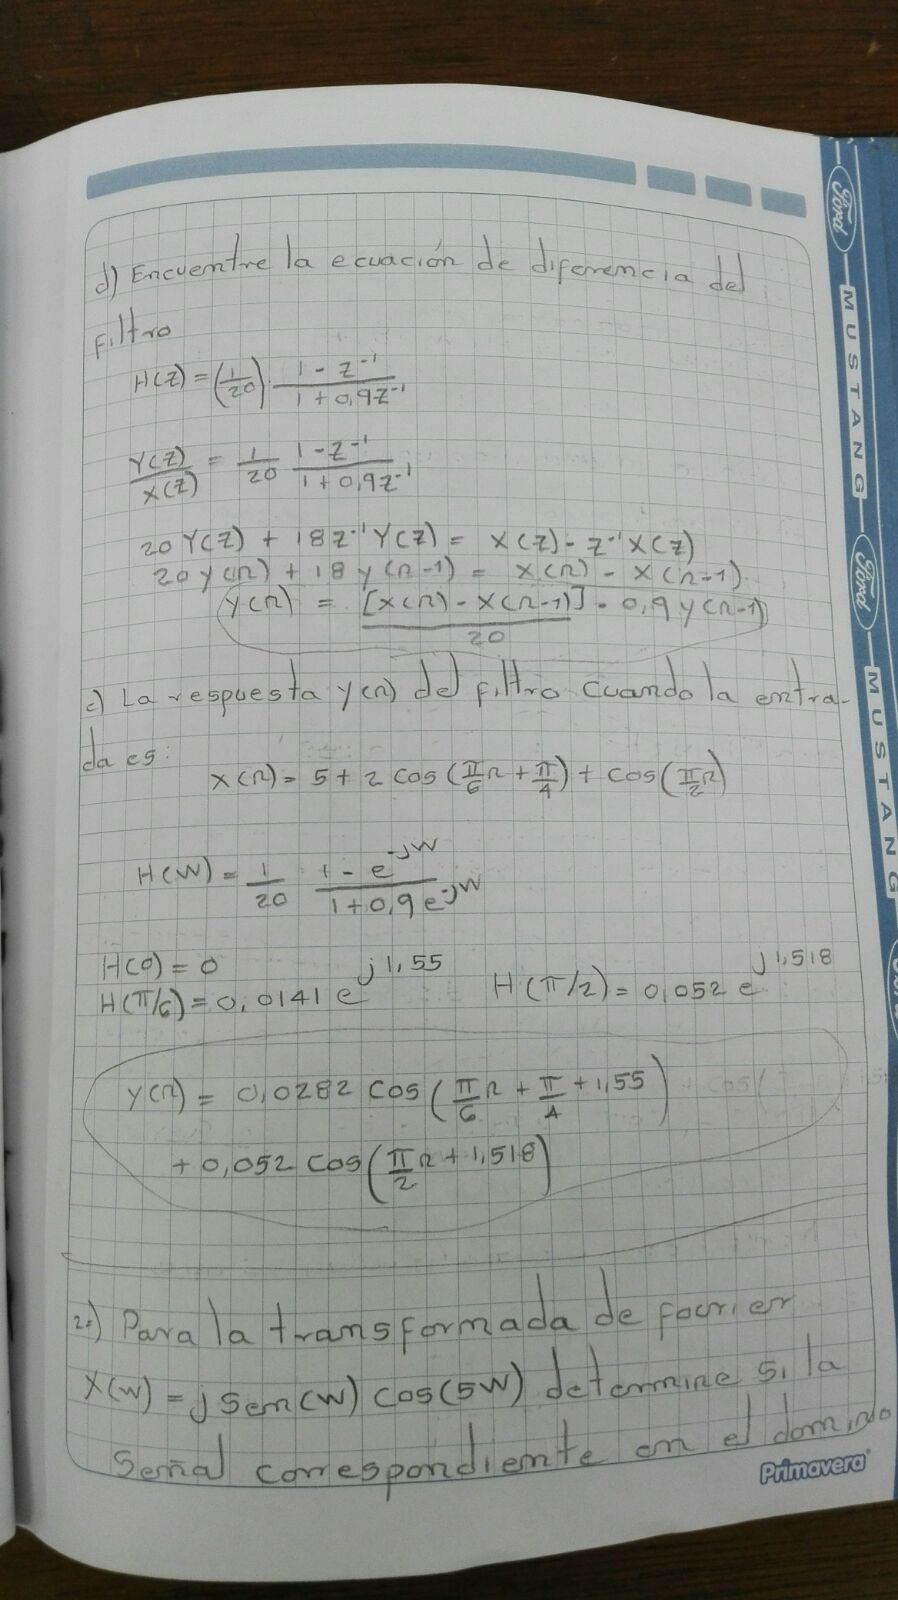 d) Encuentre la ecuación de diferencia del
filtro
H(z) = (1/20) · (1 - z⁻¹)/(1 + 0,9z⁻¹)
Y(z)/X(z) = 1/20 (1 - z⁻¹)/(1 + 0,9z⁻¹)
20Y(z) + 18z⁻¹Y(z) = X(z) - z⁻¹X(z)
20y(n) + 18y(n-1) = x(n) - x(n-1)
y(n) = [x(n) - x(n-1)]/20 - 0,9y(n-1)
c) La respuesta y(n) del filtro cuando la entra-
da es:
x(n) = 5 + 2 cos(π/6 n + π/4) + cos(π/2 n)
H(w) = 1/20 (1 - e^-jw)/(1 + 0,9e^-jw)
H(0) = 0
H(π/6) = 0,0141 e^j1,55 H(π/2) = 0,052 e^j1,518
y(n) = 0,0282 cos(π/6 n + π/4 + 1,55)
+ 0,052 cos(π/2 n + 1,518)
2.) Para la transformada de fourier
X(w) = j sen(w) cos(5w) determine si la
señal correspondiente en el dominio
Primavera
Ford
MUSTANG
Ford
MUSTANG